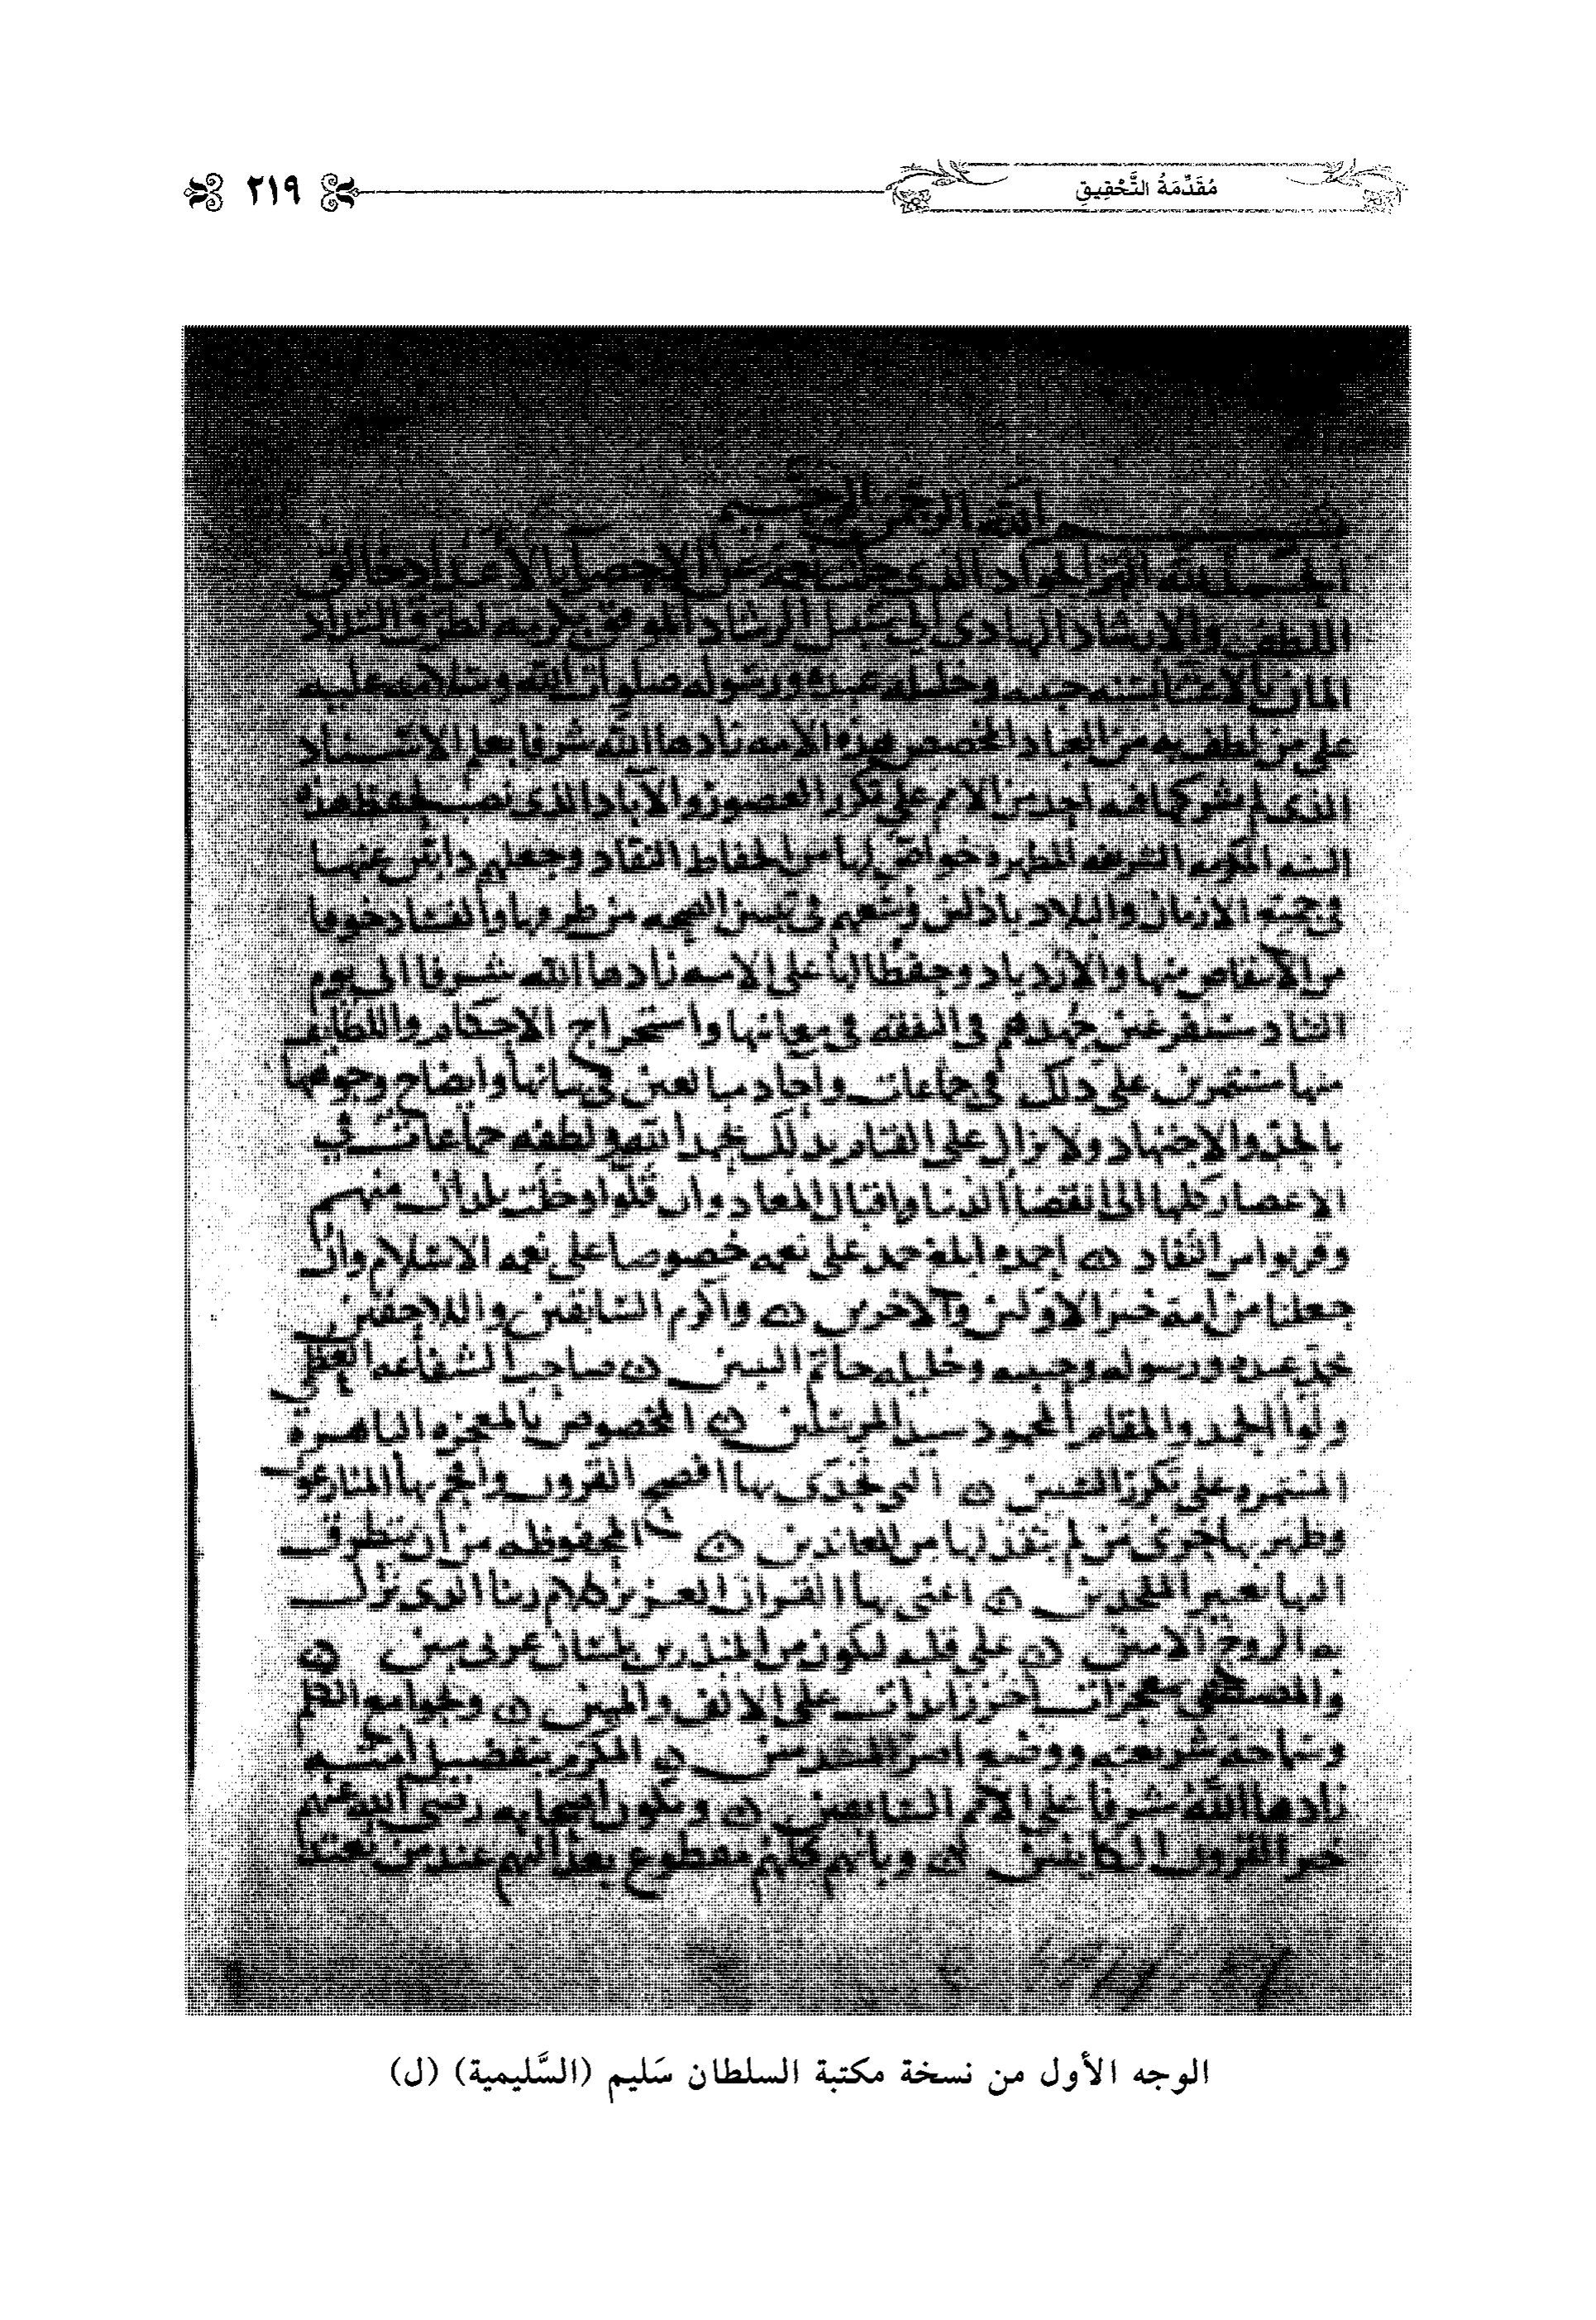 مُقَدِّمَةُ التَّحْقِيقِ
٢١٩
بسم الله الرحمن الرحيم
الحمد لله البر الجواد الذي جلت نعمه عن الاحصا بالاعداد خالق
اللطف والارشاد الهادي الى سبيل الرشاد الموفق بكرمه لطرق السداد
المان بالاعتنا بسنه حبيبه وخليله عبده ورسوله صلوات الله وسلامه عليه
على من لطف به من العباد المخصص هذه الامه زادها الله شرفا بعلم الاسناد
الذى لم يشركها فيه احد من الامم على تكرر العصور والآباد الذى نصب لحفظ هذه
السنه المكرمه الشريفه المطهره خواص لها من الحفاظ النقاد وجعلهم دابين عنها
في جميع الازمان والبلاد باذلين وسعهم في تبيين الصحه من طرقها والفساد خوفا
من الانتقاص منها والازدياد وحفظا لها على الامه زادها الله شرفا الى يوم
التناد مستفرغين جهدهم في التفقه في معانيها واستخراج الاحكام واللطايف
منها مستمرين على ذلك في جماعات واحاد مبالغين في بيانها وايضاح وجوهها
بالجد والاجتهاد ولا يزال على القيام بذلك بحمد الله ولطفه جماعات في
الاعصار كلها الى انقضا الدنيا واقبال المعاد وان قلوا وخلت بلدان منهم
وقربوا من النفاد احمده ابلغ حمد على نعمه خصوصا على نعمه الاسلام وان
جعلنا من امة خير الاولين والاخرين واكرم السابقين واللاحقين
محمد عبده ورسوله وحبيبه وخليله خاتم النبيين صاحب الشفاعه العظمى
ولوا الحمد والمقام المحمود سيد المرسلين المخصوص بالمعجزه الباهرة
المستمره على تكرر السنين التي تحدى بها افصح القرون وافحم بها المنازعون
وظهر بها خزى من لم ينقد لها من المعاندين المحفوظه من ان يتطرق
اليها تغيير الملحدين اعنى بها القران العزيز كلام ربنا الذى نزل
به الروح الامين على قلبه ليكون من المنذرين بلسان عربى مبين
والمصطفى بمعجزات اخر زايدات على الالف والمئين وبجوامع الكلم
وسماحة شريعته ووضع اصر المتقدمين المكرم بتفضيل امته
زادها الله شرفا على الامم السابقين وبكون اصحابه رضي الله عنهم
خير القرون الكاينين وبانهم كلهم مقطوع بعدالتهم عند من يعتد
الوجه الأول من نسخة مكتبة السلطان سَليم (السَّليمية) (ل)